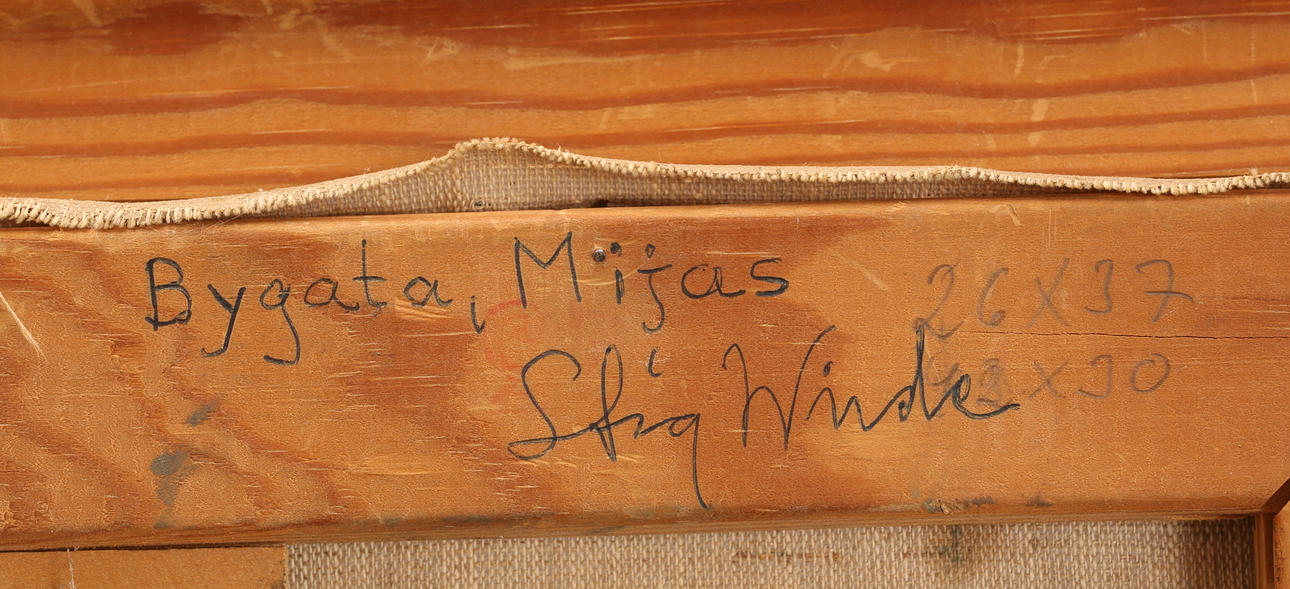 Bygata, Mijas
Stig Winde
26 X 37
42 X 30